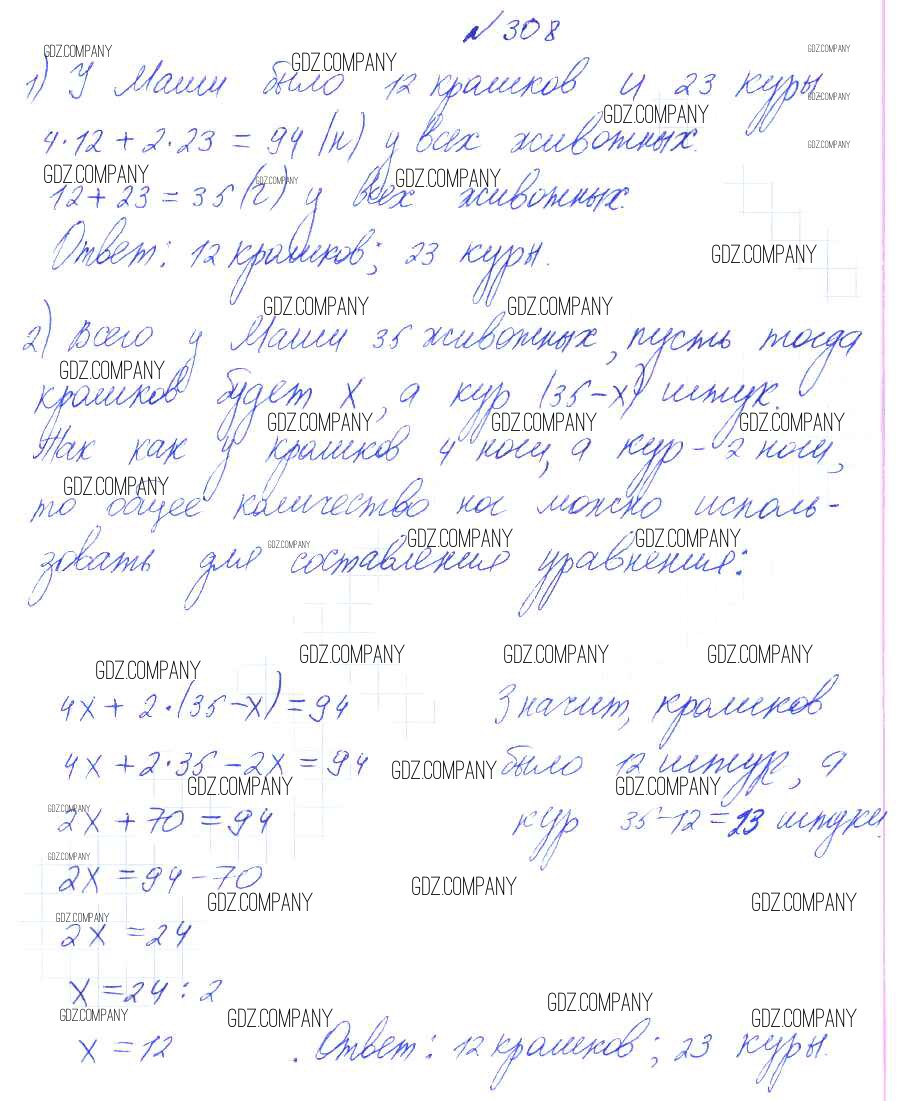 № 308
GDZ.COMPANY GDZ.COMPANY GDZ.COMPANY
1) У Маши было 12 кроликов и 23 куры
GDZ.COMPANY GDZ.COMPANY
4·12 + 2·23 = 94 (н) у всех животных.
GDZ.COMPANY
GDZ.COMPANY GDZ.COMPANY GDZ.COMPANY
12 + 23 = 35 (г) у всех животных.
Ответ: 12 кроликов; 23 куры.
GDZ.COMPANY
GDZ.COMPANY GDZ.COMPANY
2) Всего у Маши 35 животных, пусть тогда
GDZ.COMPANY
кроликов будет x, а кур (35-x) штук.
GDZ.COMPANY GDZ.COMPANY GDZ.COMPANY
Так как у кроликов 4 ноги, а кур - 2 ноги,
GDZ.COMPANY
то общее количество ног можно исполь-
GDZ.COMPANY GDZ.COMPANY GDZ.COMPANY
зовать для составления уравнения:
GDZ.COMPANY GDZ.COMPANY GDZ.COMPANY GDZ.COMPANY
4x + 2·(35-x) = 94 Значит, кроликов
4x + 2·35 - 2x = 94 GDZ.COMPANY было 12 штур, а
GDZ.COMPANY GDZ.COMPANY
GDZ.COMPANY
2x + 70 = 94 кур 35-12=23 штуки.
GDZ.COMPANY
2x = 94 - 70 GDZ.COMPANY
GDZ.COMPANY GDZ.COMPANY
GDZ.COMPANY
2x = 24
x = 24 : 2
GDZ.COMPANY
GDZ.COMPANY GDZ.COMPANY GDZ.COMPANY
x = 12 . Ответ: 12 кроликов; 23 куры.